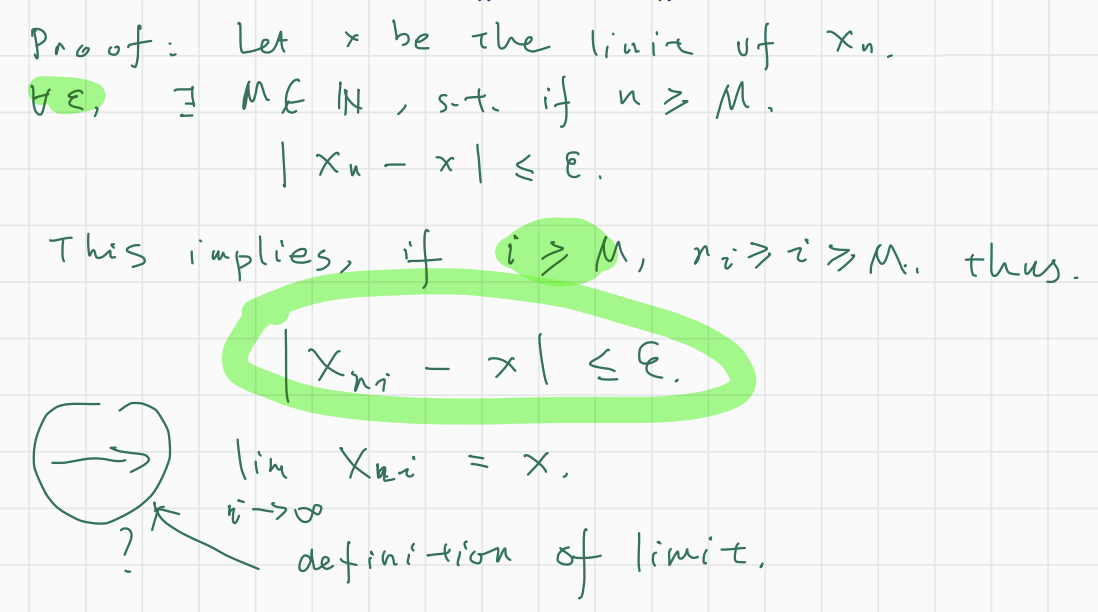 Proof: Let x be the limit of xₙ.
∀ ε, ∃ M ∈ ℕ, s.t. if n ≥ M.
| xₙ − x | ≤ ε.
This implies, if i ≥ M, nᵢ ≥ i ≥ M. thus.
| xₙᵢ − x | ≤ ε.
→ lim xₙᵢ = x.
i → ∞
?
definition of limit.